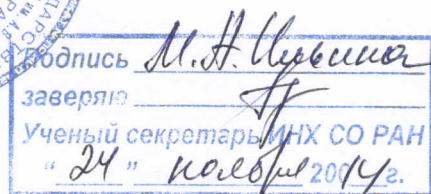 Подпись М.А. Ильина
заверяю
Ученый секретарь ИНХ СО РАН
"24" ноября 2014 г.